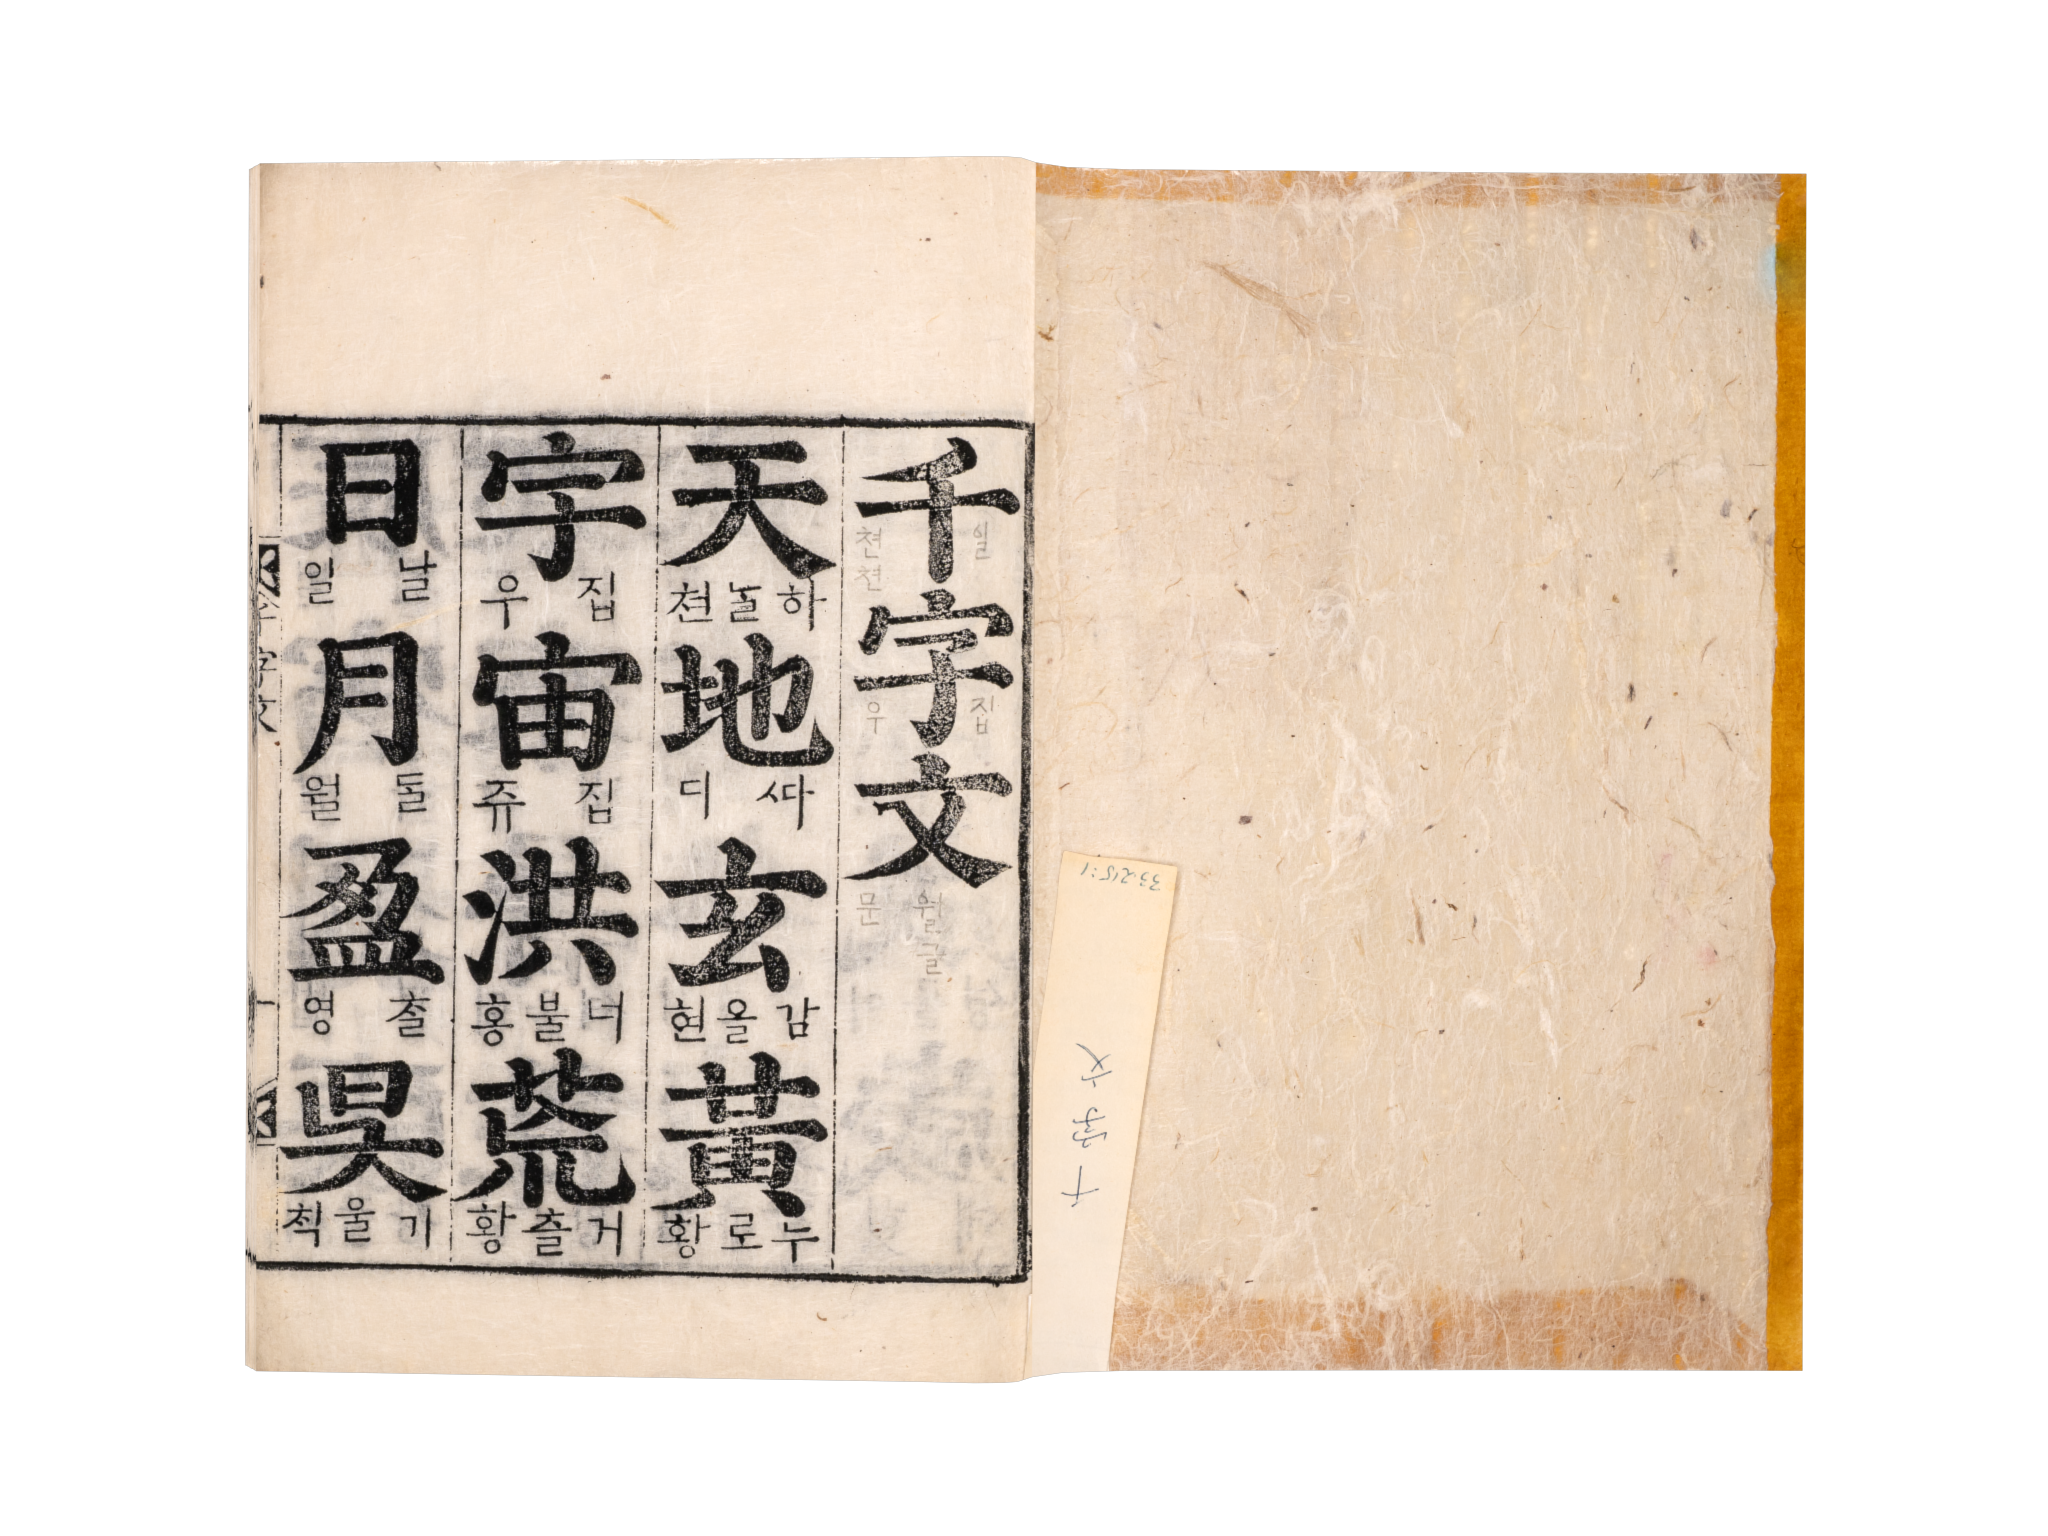 千字文
일 천 천
집 우
월글 문
天 하놀 쳔 地 ᄯᅡ 디 玄 감올 현 黃 두로 황
宇 집 우 宙 집 쥬 洪 너불 홍 荒 거츨 황
日 날 일 月 돌 월 盈 촐 영 昃 기울 칙
千字文
一
33.215:1
千字文